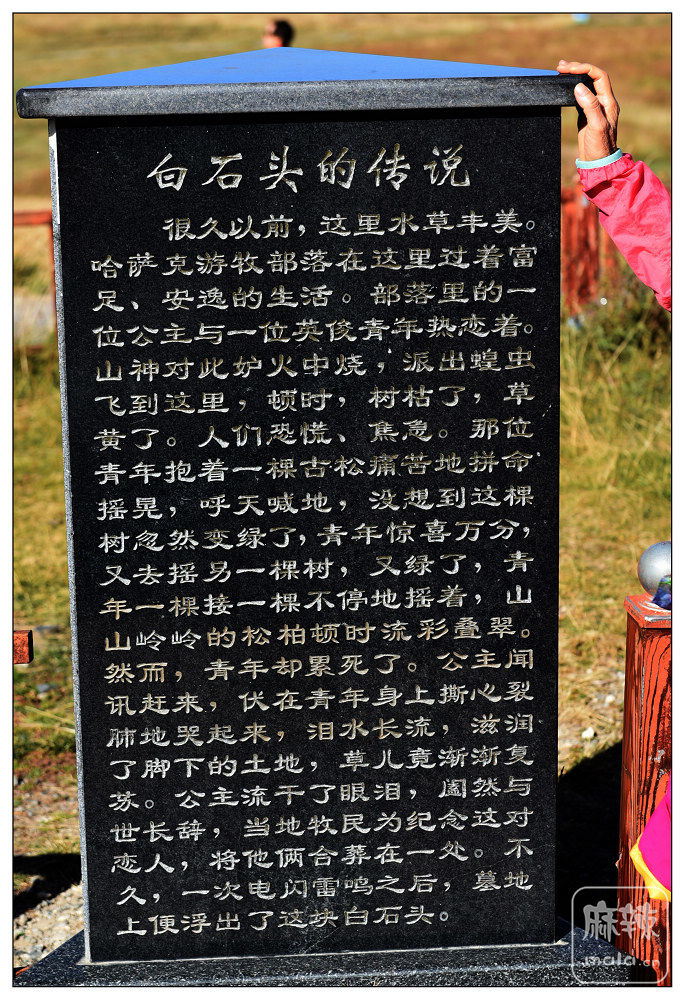 白石头的传说
很久以前，这里水草丰美。
哈萨克游牧部落在这里过着富
足、安逸的生活。部落里的一
位公主与一位英俊青年热恋着。
山神对此妒火中烧，派出蝗虫
飞到这里，顿时，树枯了，草
黄了。人们恐慌、焦急。那位
青年抱着一棵古松痛苦地拼命
摇晃，呼天喊地，没想到这棵
树忽然变绿了，青年惊喜万分，
又去摇另一棵树，又绿了，青
年一棵接一棵不停地摇着，山
山岭岭的松柏顿时流彩叠翠。
然而，青年却累死了。公主闻
讯赶来，伏在青年身上撕心裂
肺地哭起来，泪水长流，滋润
了脚下的土地，草儿竟渐渐复
苏。公主流干了眼泪，阖然与
世长辞，当地牧民为纪念这对
恋人，将他俩合葬在一处。不
久，一次电闪雷鸣之后，墓地
上便浮出了这块白石头。
麻辣
mala.cn